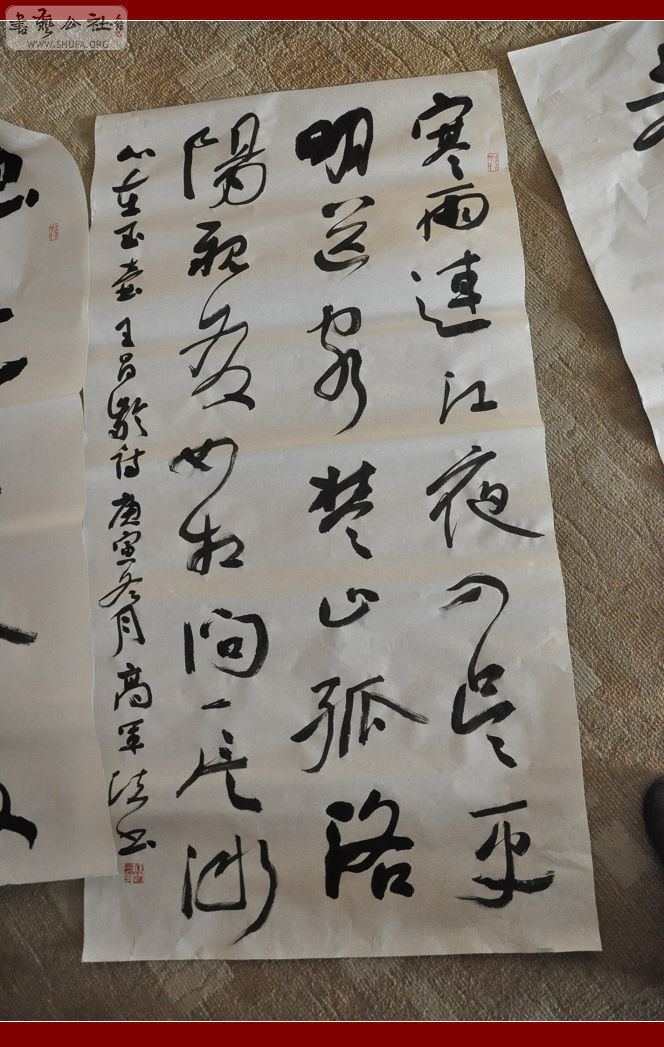 書藝公社
WWW.SHUFA.ORG
寒雨連江夜入吳平
明送客楚山孤洛
陽親友如相問一片冰
心在玉壺王昌齡詩庚寅冬月高軍法書